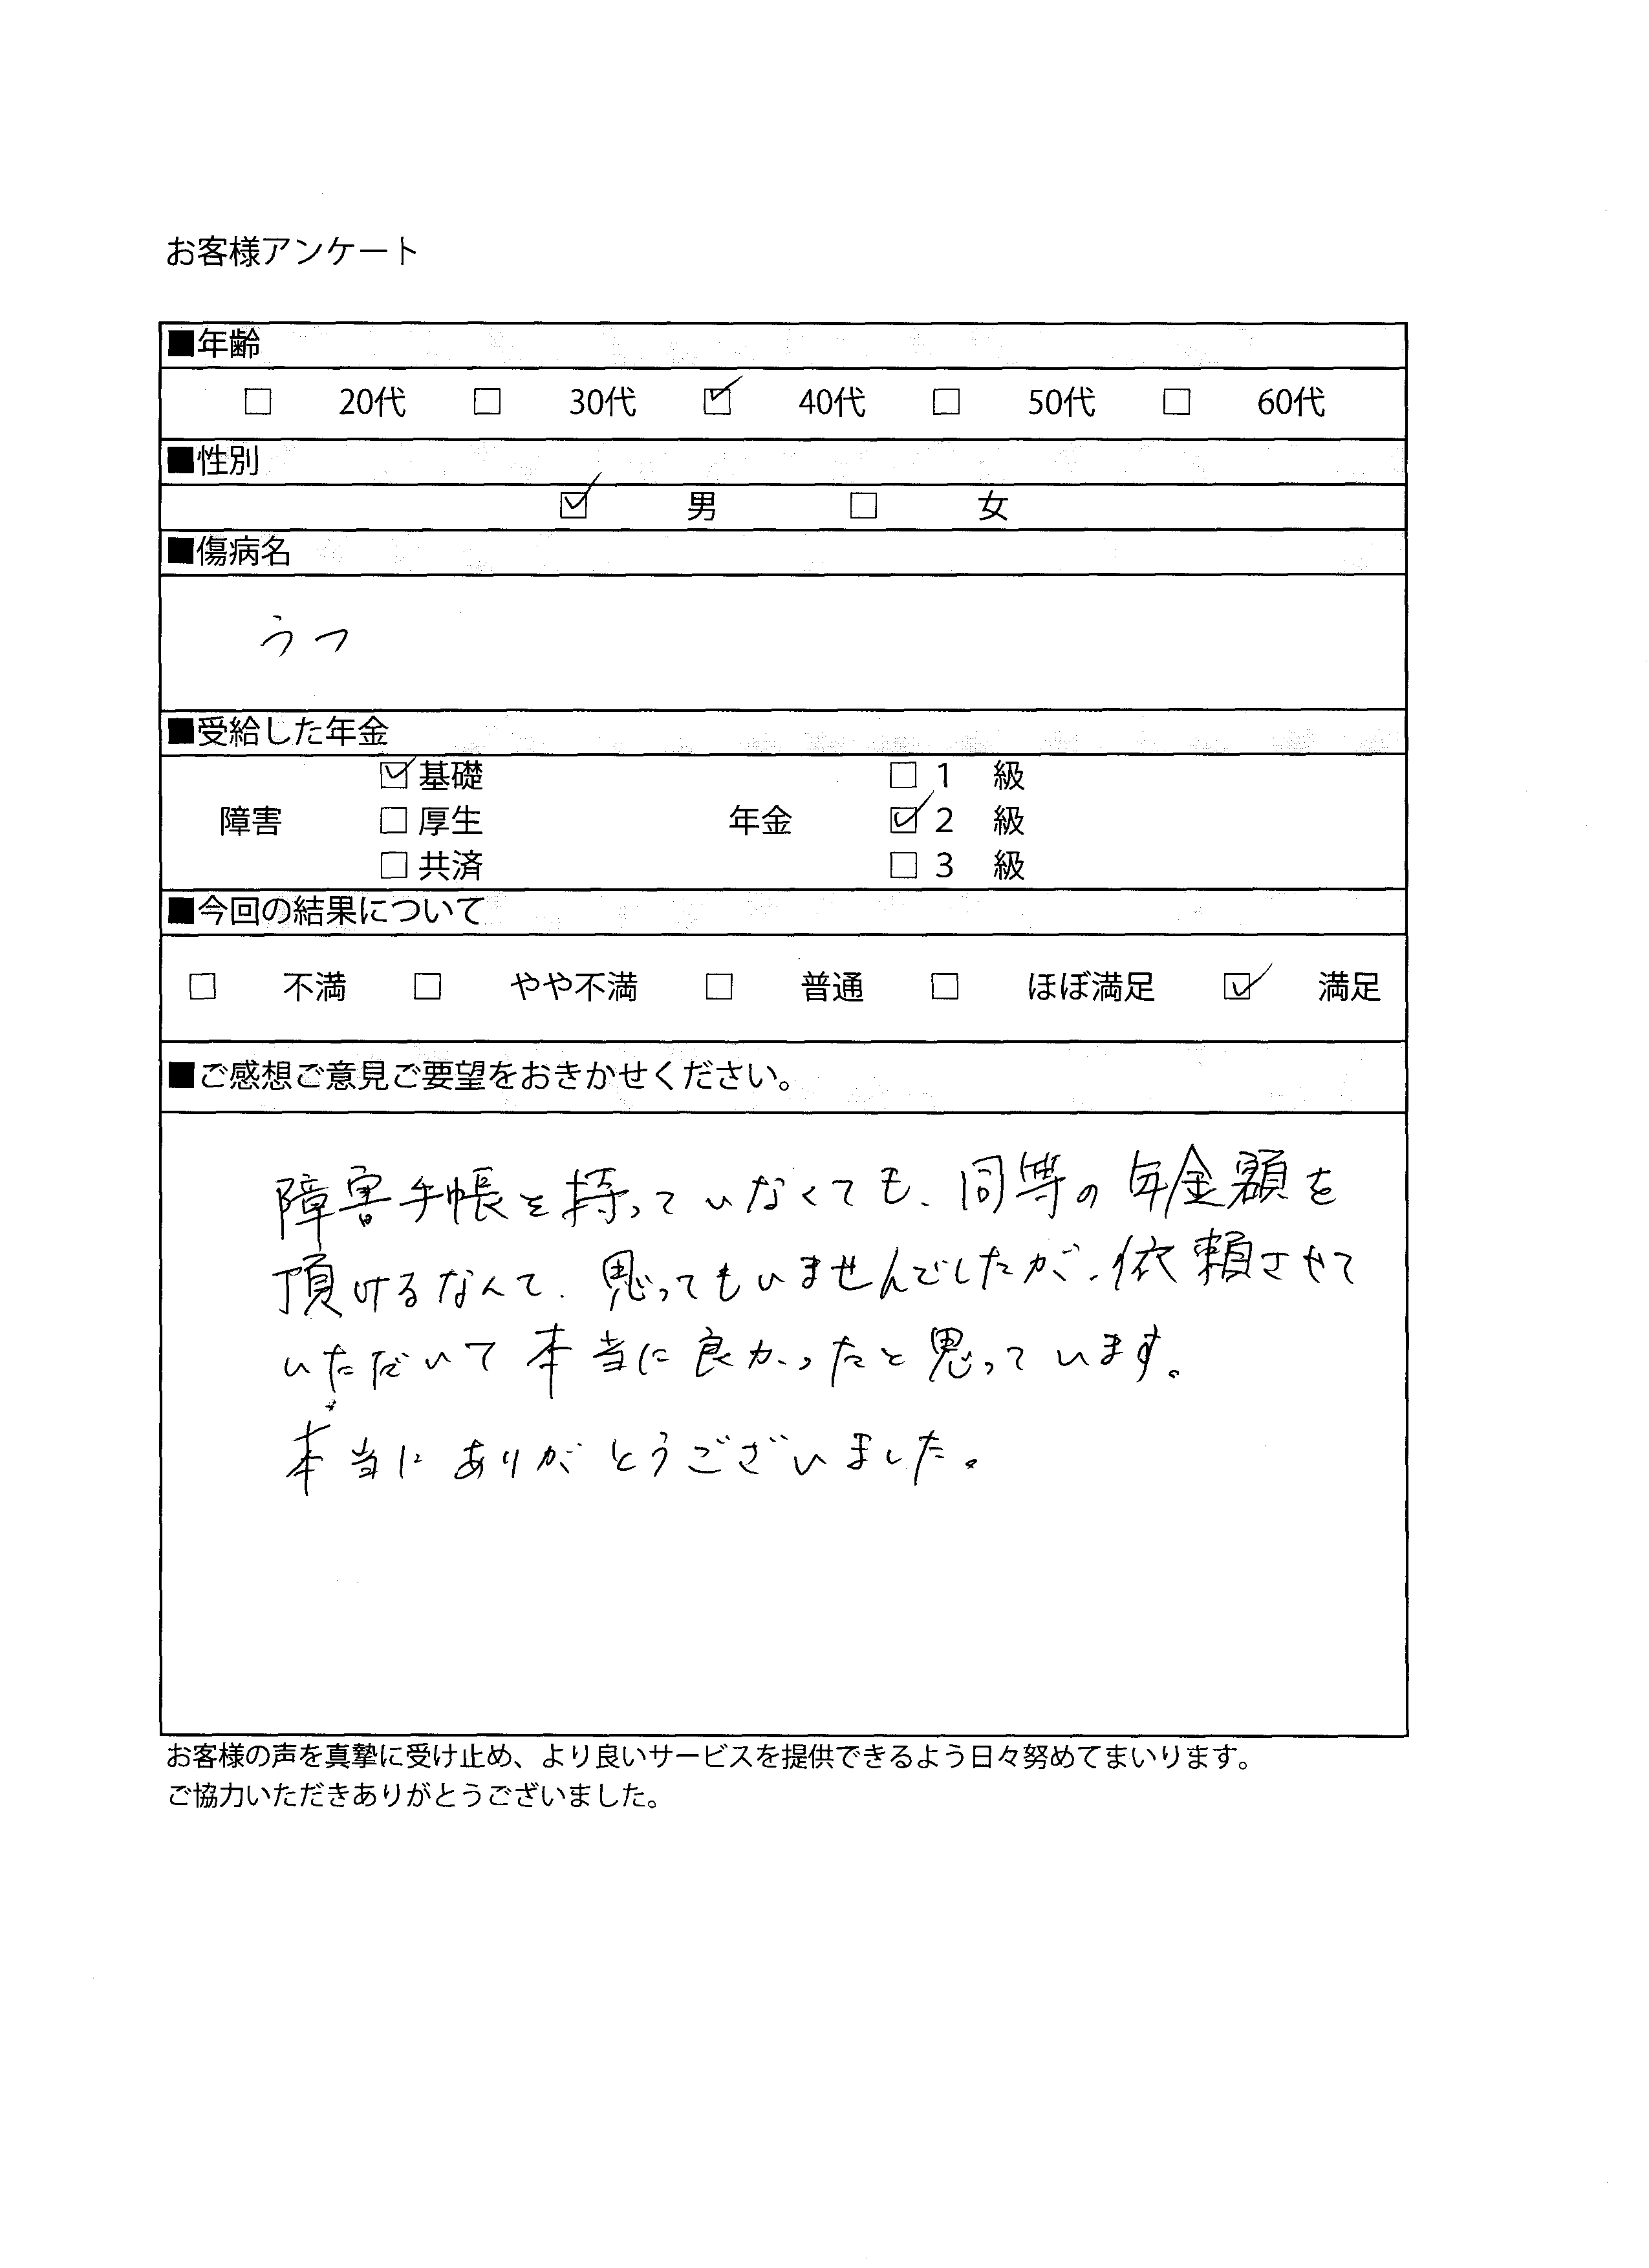 お客様アンケート
■年齢
□ 20代 □ 30代 ☑ 40代 □ 50代 □ 60代
■性別
☑ 男 □ 女
■傷病名
うつ
■受給した年金
☑基礎 □ 1 級
障害 □厚生 年金 ☑ 2 級
□共済 □ 3 級
■今回の結果について
□ 不満 □ やや不満 □ 普通 □ ほぼ満足 ☑ 満足
■ご感想ご意見ご要望をおきかせください。
障害手帳を持っていなくても、同等の年金額を
頂けるなんて、思ってもいませんでしたが、依頼させて
いただいて本当に良かったと思っています。
本当にありがとうございました。
お客様の声を真摯に受け止め、より良いサービスを提供できるよう日々努めてまいります。
ご協力いただきありがとうございました。